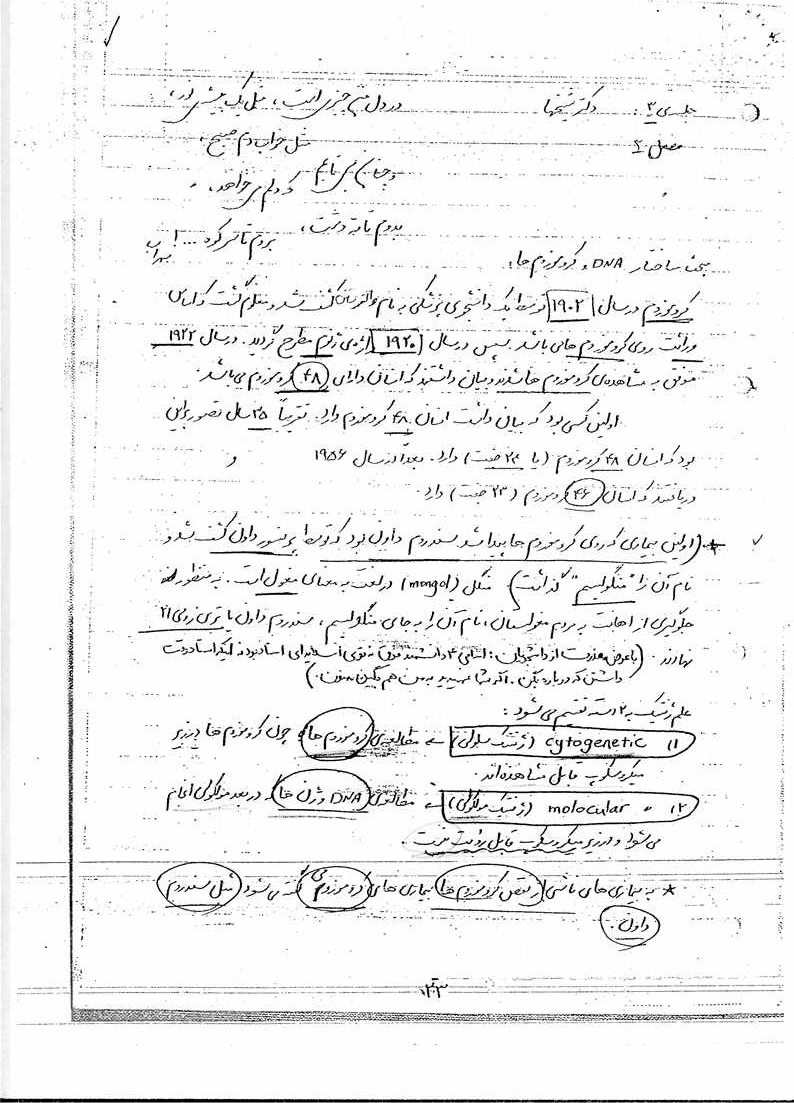 جلسه‌ی ۳: دکتر شیخها
فصل ۲
در دل من چیزی است، مثل یک بیشه‌ی نور،
مثل خواب دم صبح،
و چنان بی تابم که دلم می خواهد،
بدوم تا ته دشت، بروم تا سر کوه ...! سهراب
بحث ساختار DNA و کروموزوم ها:
کروموزوم در سال ۱۹۰۲ توسط یک دانشجوی پزشکی به نام والتر ساتن کشف شد و معلوم گشت که اساس
وراثت روی کروموزوم های باشد. سپس در سال ۱۹۲۰ واژه‌ی ژنوم مطرح گردید. در سال ۱۹۲۲
موفق به مشاهده‌ی کروموزوم ها شدند و بیان داشتند که انسان دارای ۴۸ کروموزوم می باشد.
اولین کسی بود که بیان داشت انسان ۴۸ کروموزوم دارد. تقریباً ۳۵ سال تصور براین
بود که انسان ۴۸ کروموزوم (یا ۲۴ جفت) دارد. بعداً در سال ۱۹۵۶ و
دریافتند که انسان ۴۶ کروموزوم (۲۳ جفت) دارد.
* (اولین بیماری که روی کروموزوم ها پیدا شد سندروم داون بود که توسط پرفسور داون کشف شد و
نام آن را "منگولیسم" گذاشت) منگل (mongol) در لغت به معنای مغول است. به منظور
جلوگیری از اهانت به مردم مغولستان، نام آن را به جای منگولیسم، سندروم داون یا تری زومی ۲۱
نهادند. (با عرض معذرت از دانشجویان:
علم ژنتیک به ۲ دسته تقسیم می شود:
۱) cytogenetic (ژنتیک سلولی) ← مطالعه‌ی کروموزوم ها، چون کروموزوم ها در زیر
میکروسکوپ قابل مشاهده‌اند.
۲) molocular (ژنتیک مولکولی) ← مطالعه‌ی DNA و ژن ها که در بعد مولکولی انجام
می شود و در زیر میکروسکوپ قابل رؤیت نیست.
* به بیماری های ناشی از نقص کروموزوم ها بیماری های کروموزومی گفته می شود (مثل سندروم
داون).